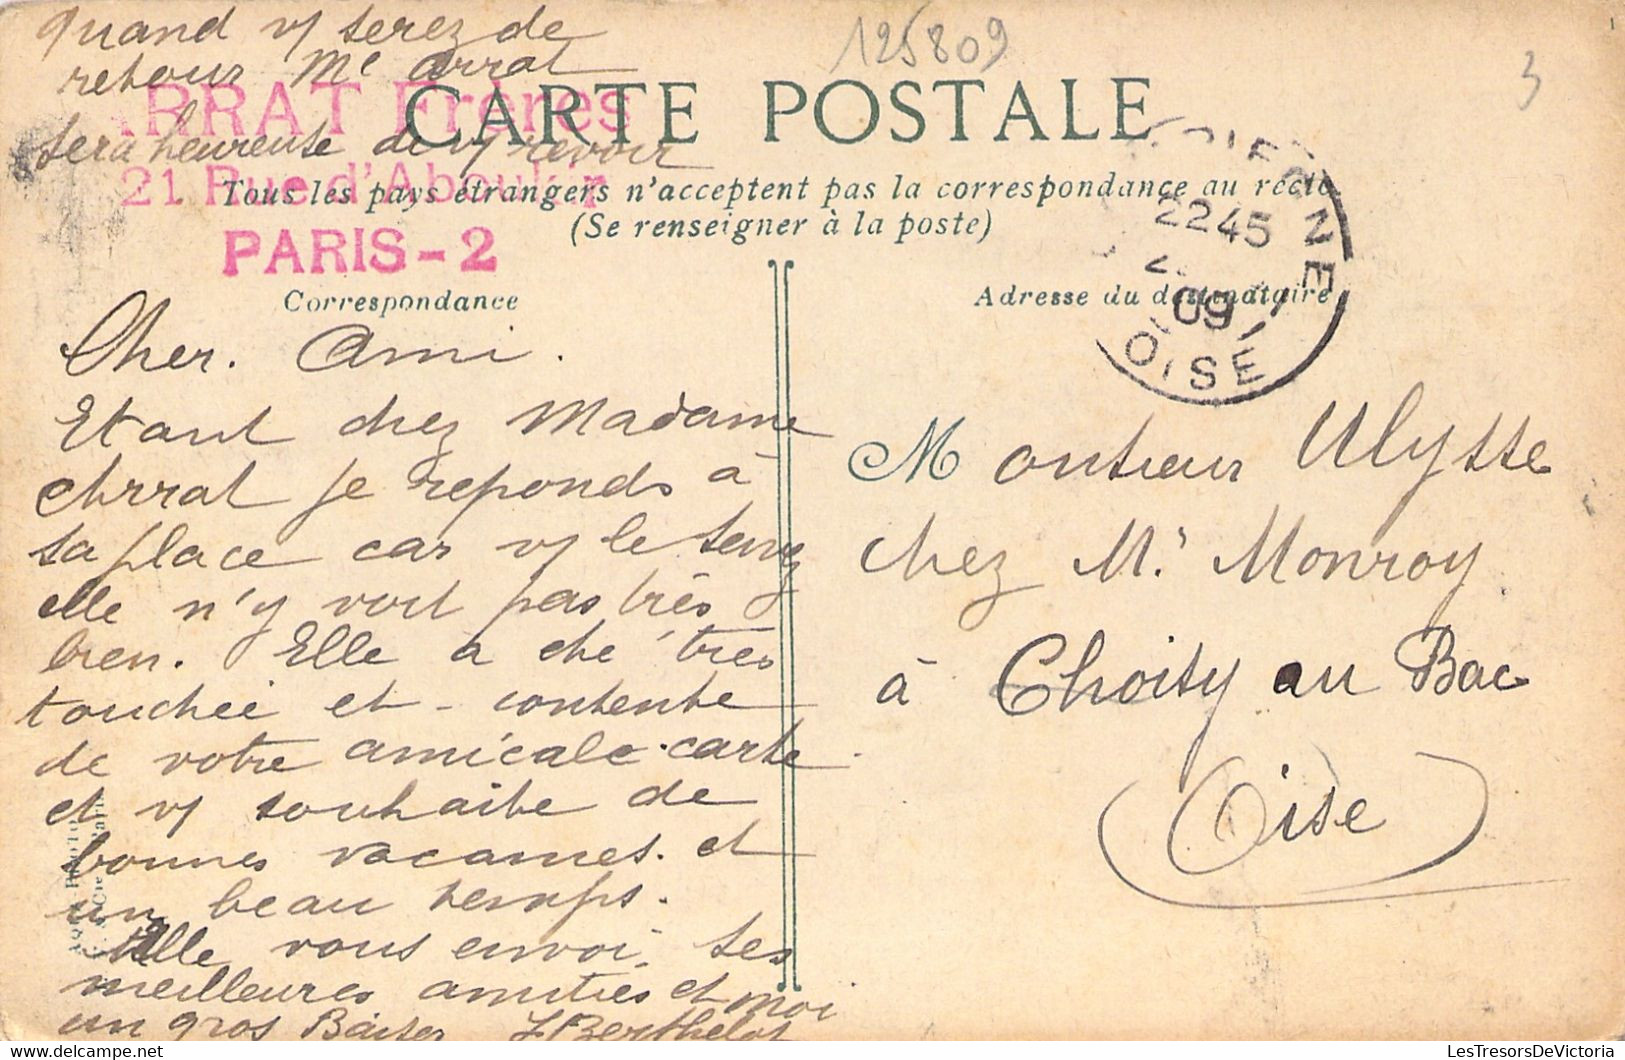 quand vs serez de
retour Me Arrat
sera heureuse de vs revoir
125809
3
CARTE POSTALE
RRAT Frères
21 Rue d'Aboukir
PARIS-2
Tous les pays étrangers n'acceptent pas la correspondance au recto
(Se renseigner à la poste)
Correspondance
Adresse du destinataire
2245
09
OISE
Cher. Ami.
Etant chez Madame
Arrat je reponds à
sa place car vs le savez
elle n'y voit pas très
bien. Elle a été très
touchée et contente
de votre amicale carte
et vs souhaite de
bonnes vacances. et
un beau temps.
Elle vous envoi ses
meilleures amitiés et moi
un gros Baiser J Berthelot
Monsieur Ulysse
chez Mr. Monroy
à Choisy au Bac
Oise
LesTresorsDeVictoria.com